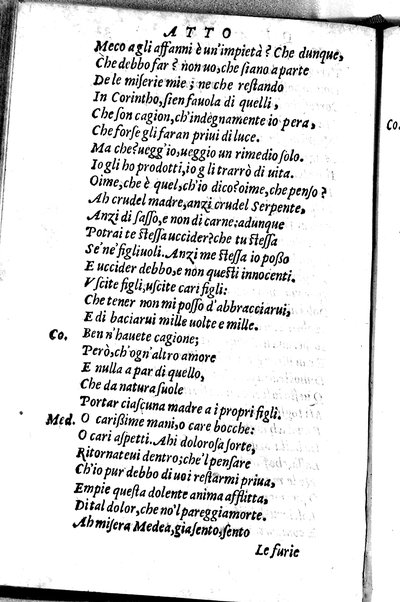 ATTO
Meco a gli affanni è un'impietà? Che dunque,
Che debbo far? non uo, che siano a parte
De le miserie mie; ne che restando
In Corintho, sien fauola di quelli,
Che son cagion, ch'indegnamente io pera,
Che forse gli faran priui di luce.
Ma che? uegg'io, ueggio un rimedio solo.
Io gli ho prodotti, io gli trarrò di uita.
Oime, che è quel, ch'io dico? oime, che penso?
Ah crudel madre, anzi crudel Serpente,
Anzi di sasso, e non di carne: adunque
Potrai te stessa uccider? che tu stessa
Se' ne' figliuoli. Anzi me stessa io posso
E uccider debbo, e non questi innocenti.
Vscite figli, uscite cari figli:
Che tener non mi posso d'abbracciarui,
E di baciarui mille uolte e mille.
Co. Ben n'hauete cagione;
Però, ch'ogn'altro amore
E nulla a par di quello,
Che da natura suole
Portar ciascuna madre a i propri figli.
Med. O carißime mani, o care bocche:
O cari aspetti. Ahi dolorosa sorte,
Ritornateui dentro; che'l pensare
Ch'io pur debbo di uoi restarmi priua,
Empie questa dolente anima afflitta,
Di tal dolor, che no'l pareggia morte.
Ah misera Medea, gia sento, sento
Le furie
Co.